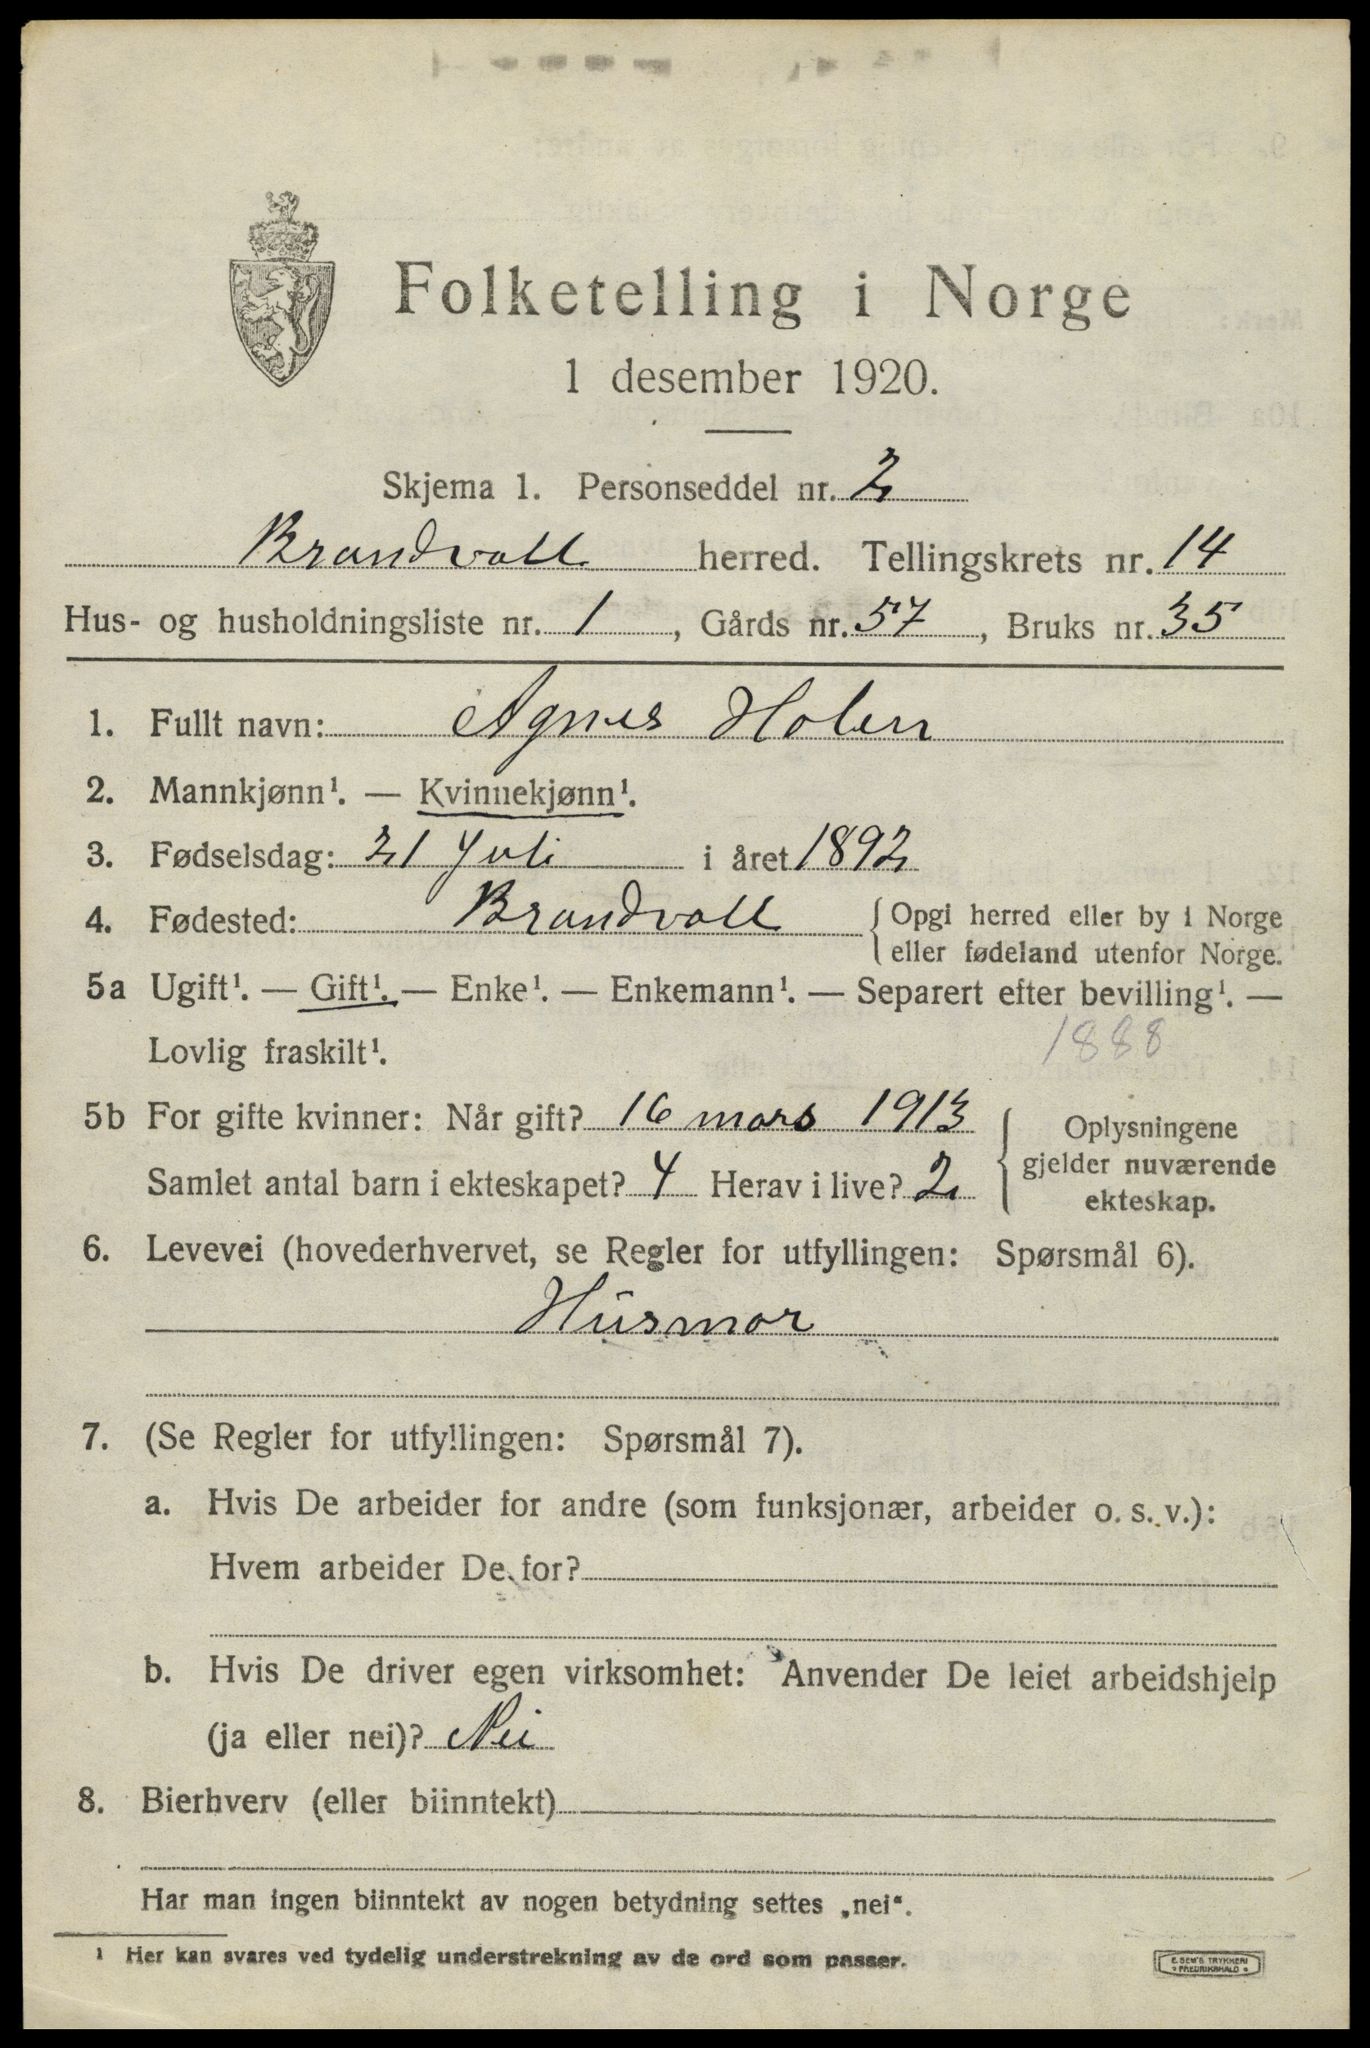 Folketelling i Norge
1 desember 1920.
Skjema 1. Personseddel nr. 2
Brandvall herred. Tellingskrets nr. 14
Hus- og husholdningsliste nr. 1, Gårds nr. 57, Bruks nr. 35
1. Fullt navn: Agnes Holen
2. Mannkjønn¹. — Kvinnekjønn¹.
3. Fødselsdag: 21 Juli i året 1892
4. Fødested: Brandvall { Opgi herred eller by i Norge
eller fødeland utenfor Norge.
5a Ugift¹. — Gift¹. — Enke¹. — Enkemann¹. — Separert efter bevilling¹. —
Lovlig fraskilt¹. 1888
5b For gifte kvinner: Når gift? 16 mars 1913
Samlet antal barn i ekteskapet? 4 Herav i live? 2
{ Oplysningene
gjelder nuværende
ekteskap.
6. Levevei (hovederhvervet, se Regler for utfyllingen: Spørsmål 6).
Husmor
7. (Se Regler for utfyllingen: Spørsmål 7).
a. Hvis De arbeider for andre (som funksjonær, arbeider o. s. v.):
Hvem arbeider De for?
b. Hvis De driver egen virksomhet: Anvender De leiet arbeidshjelp
(ja eller nei)? Nei
8. Bierhverv (eller biinntekt)
Har man ingen biinntekt av nogen betydning settes „nei“.
¹ Her kan svares ved tydelig understrekning av de ord som passer.
E. SEM'S TRYKKERI
FREDRIKSHALD